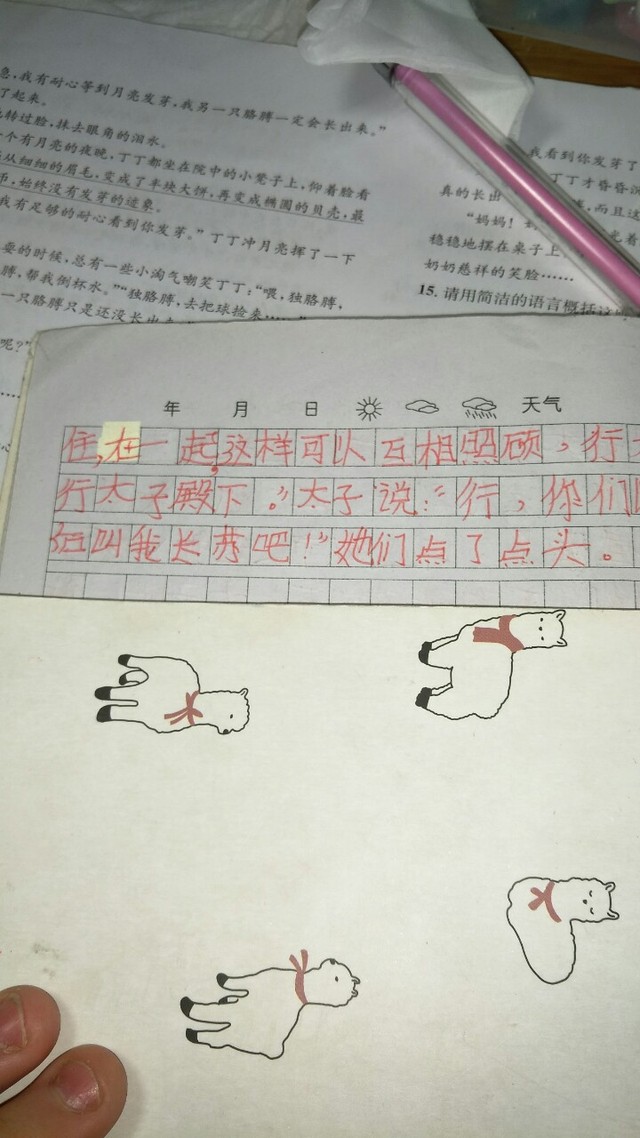 急,我有耐心等到月亮发芽,我另一只胳膊一定会长出来。”
了起来。
转过脸,抹去眼角的泪水。
个有月亮的夜晚,丁丁都坐在院中的小凳子上,仰着脸看
从细细的眉毛,变成了半块大饼,再变成椭圆的贝壳,最
币,始终没有发芽的迹象。
我有足够的耐心看到你发芽。”丁丁冲月亮挥了一下
耍的时候,总有一些小淘气嘲笑丁丁:“喂,独胳膊,
膊,帮我倒杯水。”“独胳膊,去把球捡来……”
一只胳膊只是还没长出
呢?”
我看到你发芽了
丁丁才昏昏
真的长出 ,而且这
“妈妈!
稳稳地摆在桌子上
奶奶慈祥的笑脸……
15. 请用简洁的语言概括这
年 月 日 天气
住,在一起,这样可以互相照顾,行
行太子殿下。”太子说:“行,你们
后叫我长芳吧!”她们点了点头。